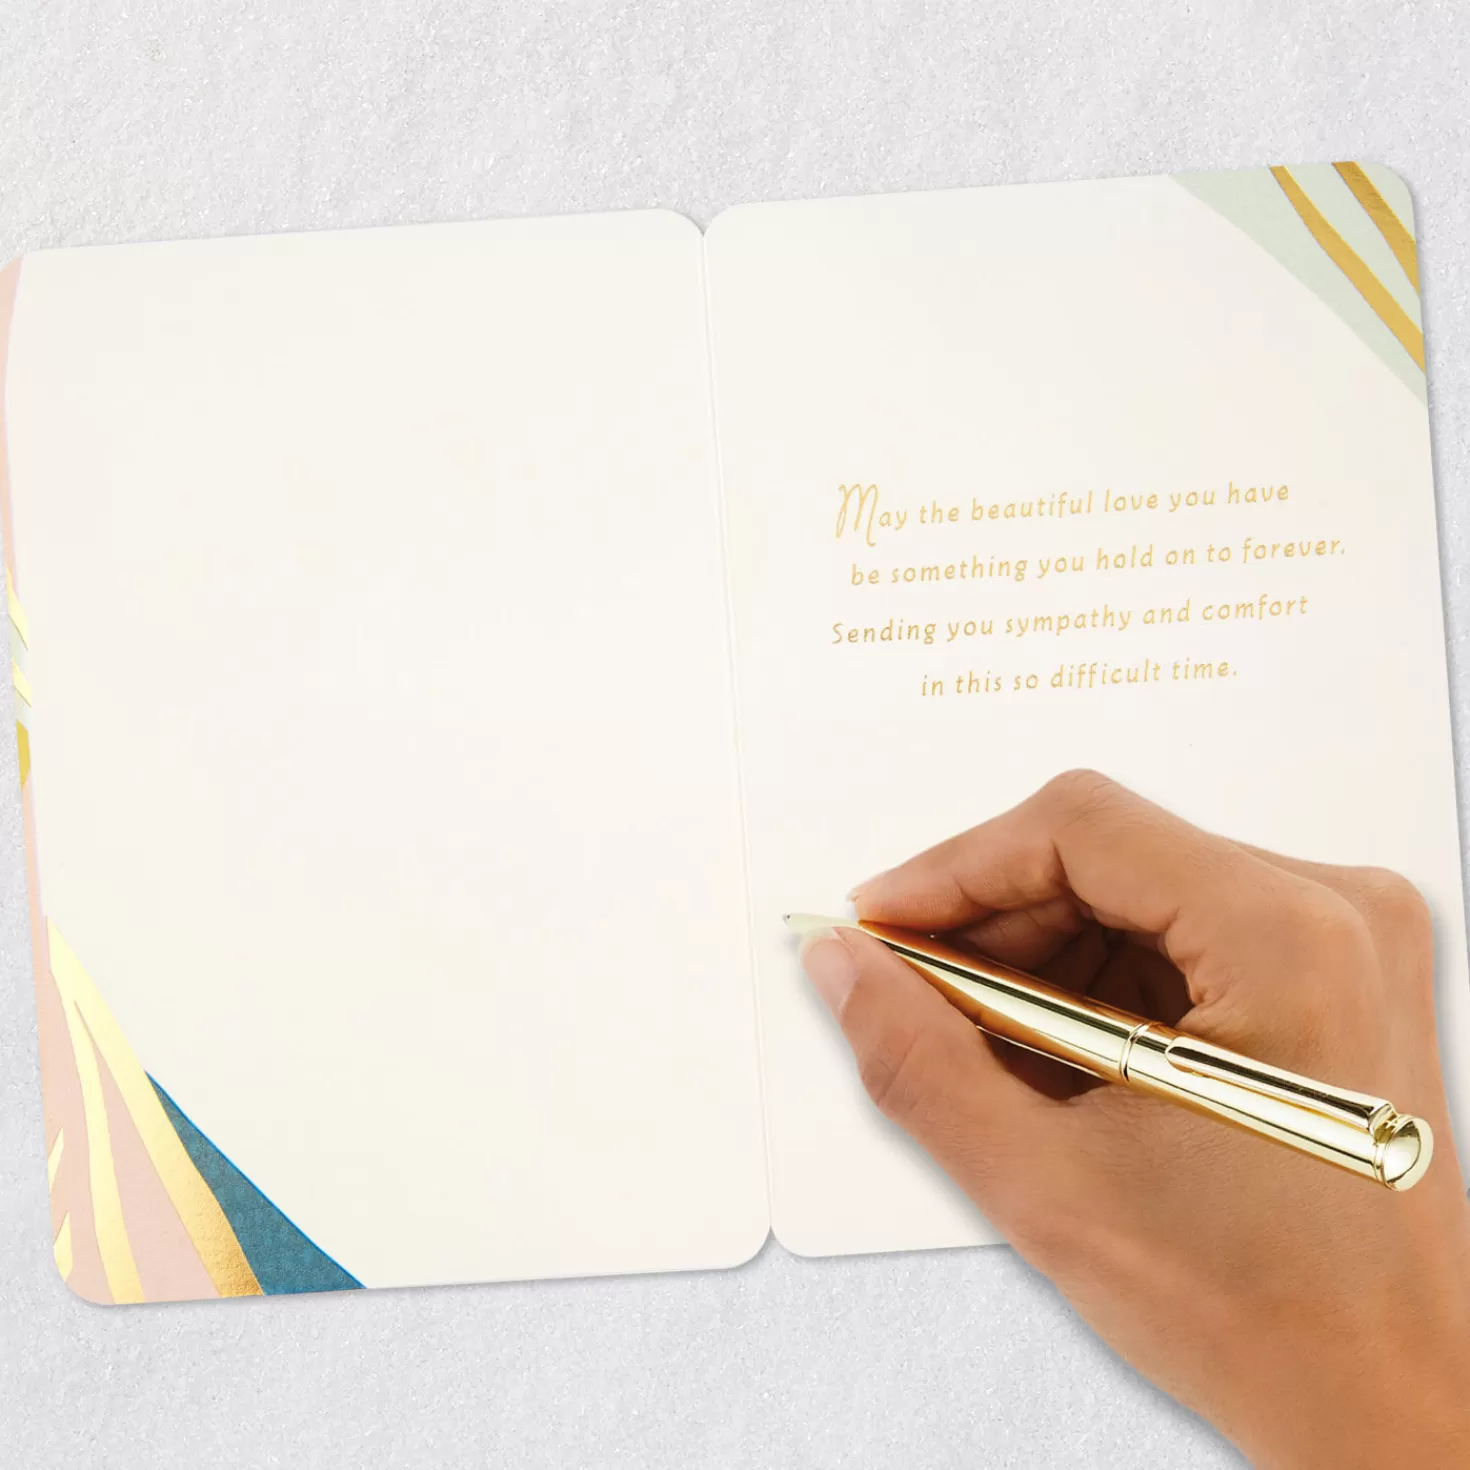 May the beautiful love you have
be something you hold on to forever.
Sending you sympathy and comfort
in this so difficult time.